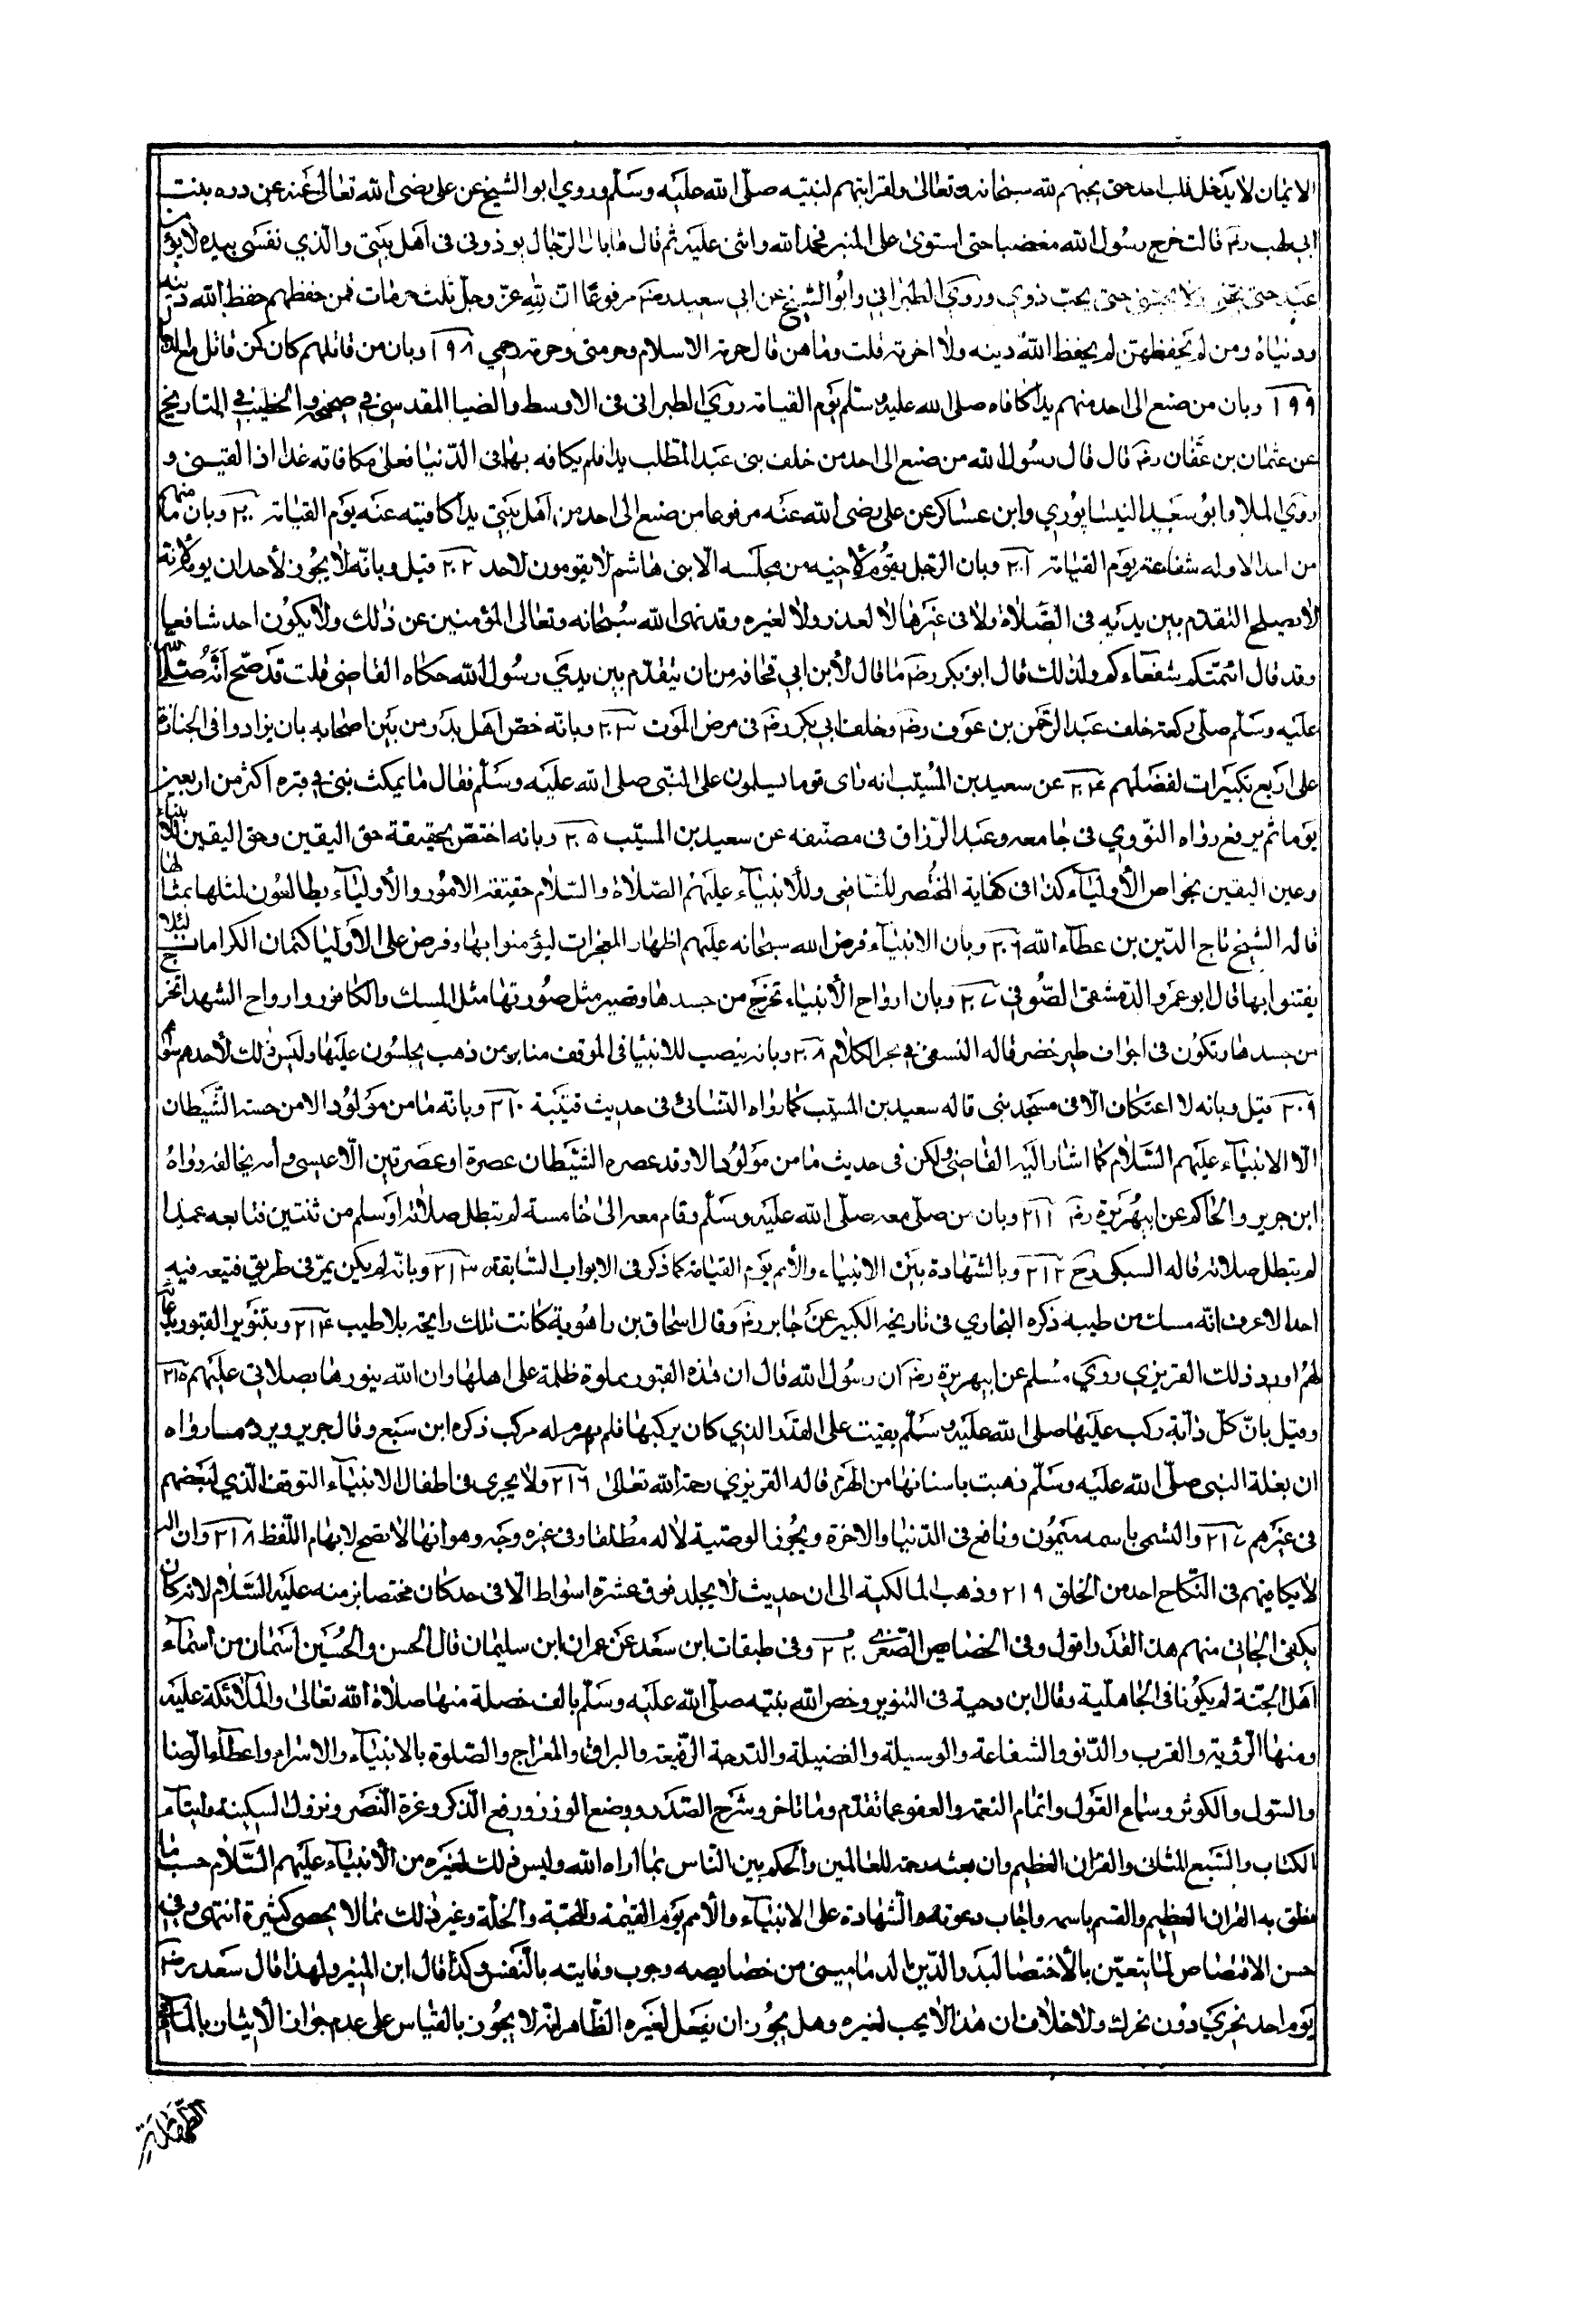 الايمان لا يدخل قلب احد حتى يحبهم لله سبحانه وتعالى ولقرابتهم لنبيه صلى الله عليه وسلم وروي ابو الشيخ عن على رضى الله تعالى عنه عن دره بنت
ابي لهب رضـ قالت خرج رسول الله مغضبا حتى استوى على المنبر فحمد الله واثنى عليه ثم قال ما بال الرجال يوذونى فى اهل بيتى والذي نفسى بيده لا يؤمن
عبد حتى يحبنى ولا يحبنى حتى يحب ذوي وروى الطبراني وابو الشيخ عن ابي سعيد رضـ مرفوعا ان لله عز وجل ثلث حرمات فمن حفظهم حفظ الله دينه
ودنياه ومن لم يحفظهن لم يحفظ الله دينه ولا اخرته قلت وما هن قال حرمة الاسلام وحرمتى وحرمة رحمي ١٩٨ وبان من قاتلهم كان كمن قاتل مع الدجال
١٩٩ وبان من صنع الى احد منهم يدا كافاه صلى الله عليه وسلم يوم القيامة روي الطبرانى فى الاوسط والضيا المقدسى في صحيحه والخطيب في التاريخ
عن عثمان بن عفان رضـ قال قال رسول الله من صنع الى احد من خلف بنى عبد المطلب يدا فلم يكافه بها فى الدنيا فعلى مكافاته غدا اذا لقينى و
روي الملا وابو سعيد النيسابوري وابن عساكر عن على رضى الله عنه مرفوعا من صنع الى احد من اهل بيتي يدا كافيته عنه يوم القيامة ٢٠٠ وبان ما منهم
من احد الا وله شفاعة يوم القيامة ٢٠١ وبان الرجل يقوم لاخيه من مجلسه الا بنى هاشم لا يقومون لاحد ٢٠٢ قيل وبانه لا يجوز لأحد ان يومه لانه
لا يصلح التقدم بين يديه فى الصلاة ولا فى غيرها لا لعذر ولا لغيره وقد نهى الله سبحانه وتعالى المؤمنين عن ذالك ولا يكون احد شافعيا
وقد قال ائمتكم شفعاءكم ولذلك قال ابو بكر رضـ ما قال لأبن ابي قحافه من ان يتقدم بين يدي رسول الله حكاه القاضى قلت قد صح انه صلى الله
عليه وسلم صلى ركعة خلف عبد الرحمن بن عوف رضـ وخلف ابي بكر رضـ فى مرض الموت ٢٠٣ وبانه خص اهل بدر من بين اصحابه بان يزادوا فى الجنازة
على اربع تكبيرات لفضلهم ٢٠٤ عن سعيد بن المسيب انه راى قوما يسلمون على النبى صلى الله عليه وسلم فقال ما يمكث نبى في قبره اكثر من اربعين
يوما ثم يرفع رواه الثوري فى جامعه وعبد الرزاق فى مصنفه عن سعيد بن المسيب ٢٠٥ وبانه اختص بحقيقة حق اليقين وحق اليقين للانبياء
وعين اليقين بخواص الأولياء كذا فى كفاية المختصر للشاضى وللأنبياء عليهم الصلاة والسلام حقيقة الامور والأولياء يطالعون لمثلها بمثالها
قاله الشيخ تاج الدين بن عطاء الله ٢٠٦ وبان الانبياء فرض الله سبحانه عليهم اظهار المعجزات ليؤمنوا بها وفرض على الأوليا كتمان الكرامات لئلا
يفتنوا بها قال ابو عمرو الدمشقى الصوفي ٢٠٧ وبان ارواح الأنبياء تخرج من جسدها وتصير مثل صورتها مثل المسك والكافور وارواح الشهدا تخرج
من جسدها وتكون فى اجواف طير خضر قاله النسفى في بحر الكلام ٢٠٨ وبانه ينصب للانبيا فى الموقف منابر من ذهب يجلسون عليها وليس ذلك لأحد سواهم
٢٠٩ قيل وبانه لا اعتكاف الا فى مسجد نبى قاله سعيد بن المسيب كما رواه النسائى فى حديث قتيبة ٢١٠ وبانه ما من مولود الا من حسه الشيطان
الا الانبياء عليهم السلام كما اشار اليه القاضى ولكن فى حديث ما من مولود الا وقد عصره الشيطان عصرة او عصرتين الا عيسى وأمه يخالفه رواه
ابن جرير والحاكم عن ابيهريرة رضـ ٢١١ وبان من صلى معه صلى الله عليه وسلم وقام معه الى خامسة لم تبطل صلاته او سلم من ثنتين فتابعه عمدا
لم تبطل صلاته قاله السبكى رح ٢١٢ وبالشهادة بين الانبياء والأمم يوم القيامة كما ذكر فى الابواب السابقة ٢١٣ وبانه لم يكن يمر فى طريق فتبعه فيه
احد الا عرف انه مسلك من طيبه ذكره البخاري فى تاريخه الكبير عن جابر رضـ وقال اسحاق بن راهوية كانت تلك رايحته بلا طيب ٢١٤ وبتنوير القبور بدعائه
لهم اورد ذلك القزيزي روي مسلم عن ابيهريرة رضـ ان رسول الله قال ان هذه القبور مملوة ظلمة على اهلها وان الله ينورها بصلاتى عليهم ٢١٥
وقيل بان كل دابة ركب عليها صلى الله عليه وسلم بقيت على القدر الذي كان يركبها فلم يهرم له مركب ذكره ابن سبع وقال جرير ويرده ما رواه
ان بغلة النبى صلى الله عليه وسلم ذهبت باسنانها من الهرم قاله القريزي رحمة الله تعالى ٢١٦ ولا يجرى فى اطفال الانبياء التوقف الذي لبعضهم
فى غيرهم ٢١٧ والتسمى باسمه ميمون ونافع فى الدنيا والاخرة ويجوز الوصية لاله مطلقا وفى غيره وجه وهو انها لا تصح لابهام اللفظ ٢١٨ وان اله
لا يكافيهم فى النكاح احد من الخلق ٢١٩ وذهب المالكية الى ان حديث لا يجلد فوق عشرة اسواط الا فى حد كان مختصا بزمنه عليه السلام لانه كان
يكفى الجانى منهم هذا القدر اقول وفى الخصايص الصغرى ٢٢٠ وفى طبقات ابن سعد عن عمران ابن سليمان قال الحسن والحسين اسمان من اسماء
اهل الجنة لم يكونا فى الجاهلية وقال ابن دحية فى التنوير وخص الله نبيه صلى الله عليه وسلم بالف خصلة منها صلاة الله تعالى والملائكة عليه
ومنها الرؤية والقرب والدنو والشفاعة والوسيلة والفضيلة والدرجة الرفيعة والبراق والمعراج والصلوة بالانبياء والاسراء واعطاء الرضا
والسول والكوثر وسماع القول واتمام النعمة والعفو عما تقدم وما تاخر وشرح الصدر ووضع الوزر ورفع الذكر وعزة النصر ونزول السكينة وايتاء
الكتاب والسبع المثانى والقران العظيم وان بعثه رحمة للعالمين والحكم بين الناس بما اراه الله وليس ذلك لغيره من الأنبياء عليهم السلام حسب ما
نطق به القران العظيم والقسم باسمه واجاب دعوته والشهادة على الانبياء والأمم يوم القيمة والمحبة والخلة وغير ذلك مما لا يحصى كثرة انتهى وفي
حسن الاقتصاص لما يتعين بالأختصا لبدر الدين الدماميني من خصايصه وجوب وقايته بالنفس وكذا قال ابن المنير ولهذا قال سعد رضـ
يوم احد نحري دون نحرك ولا خلاف ان هذا لا يجب لغيره وهل يجوز ان يفعل لغيره الظاهر انه لا يجوز بالقياس على عدم جواز الأيثار بالماء